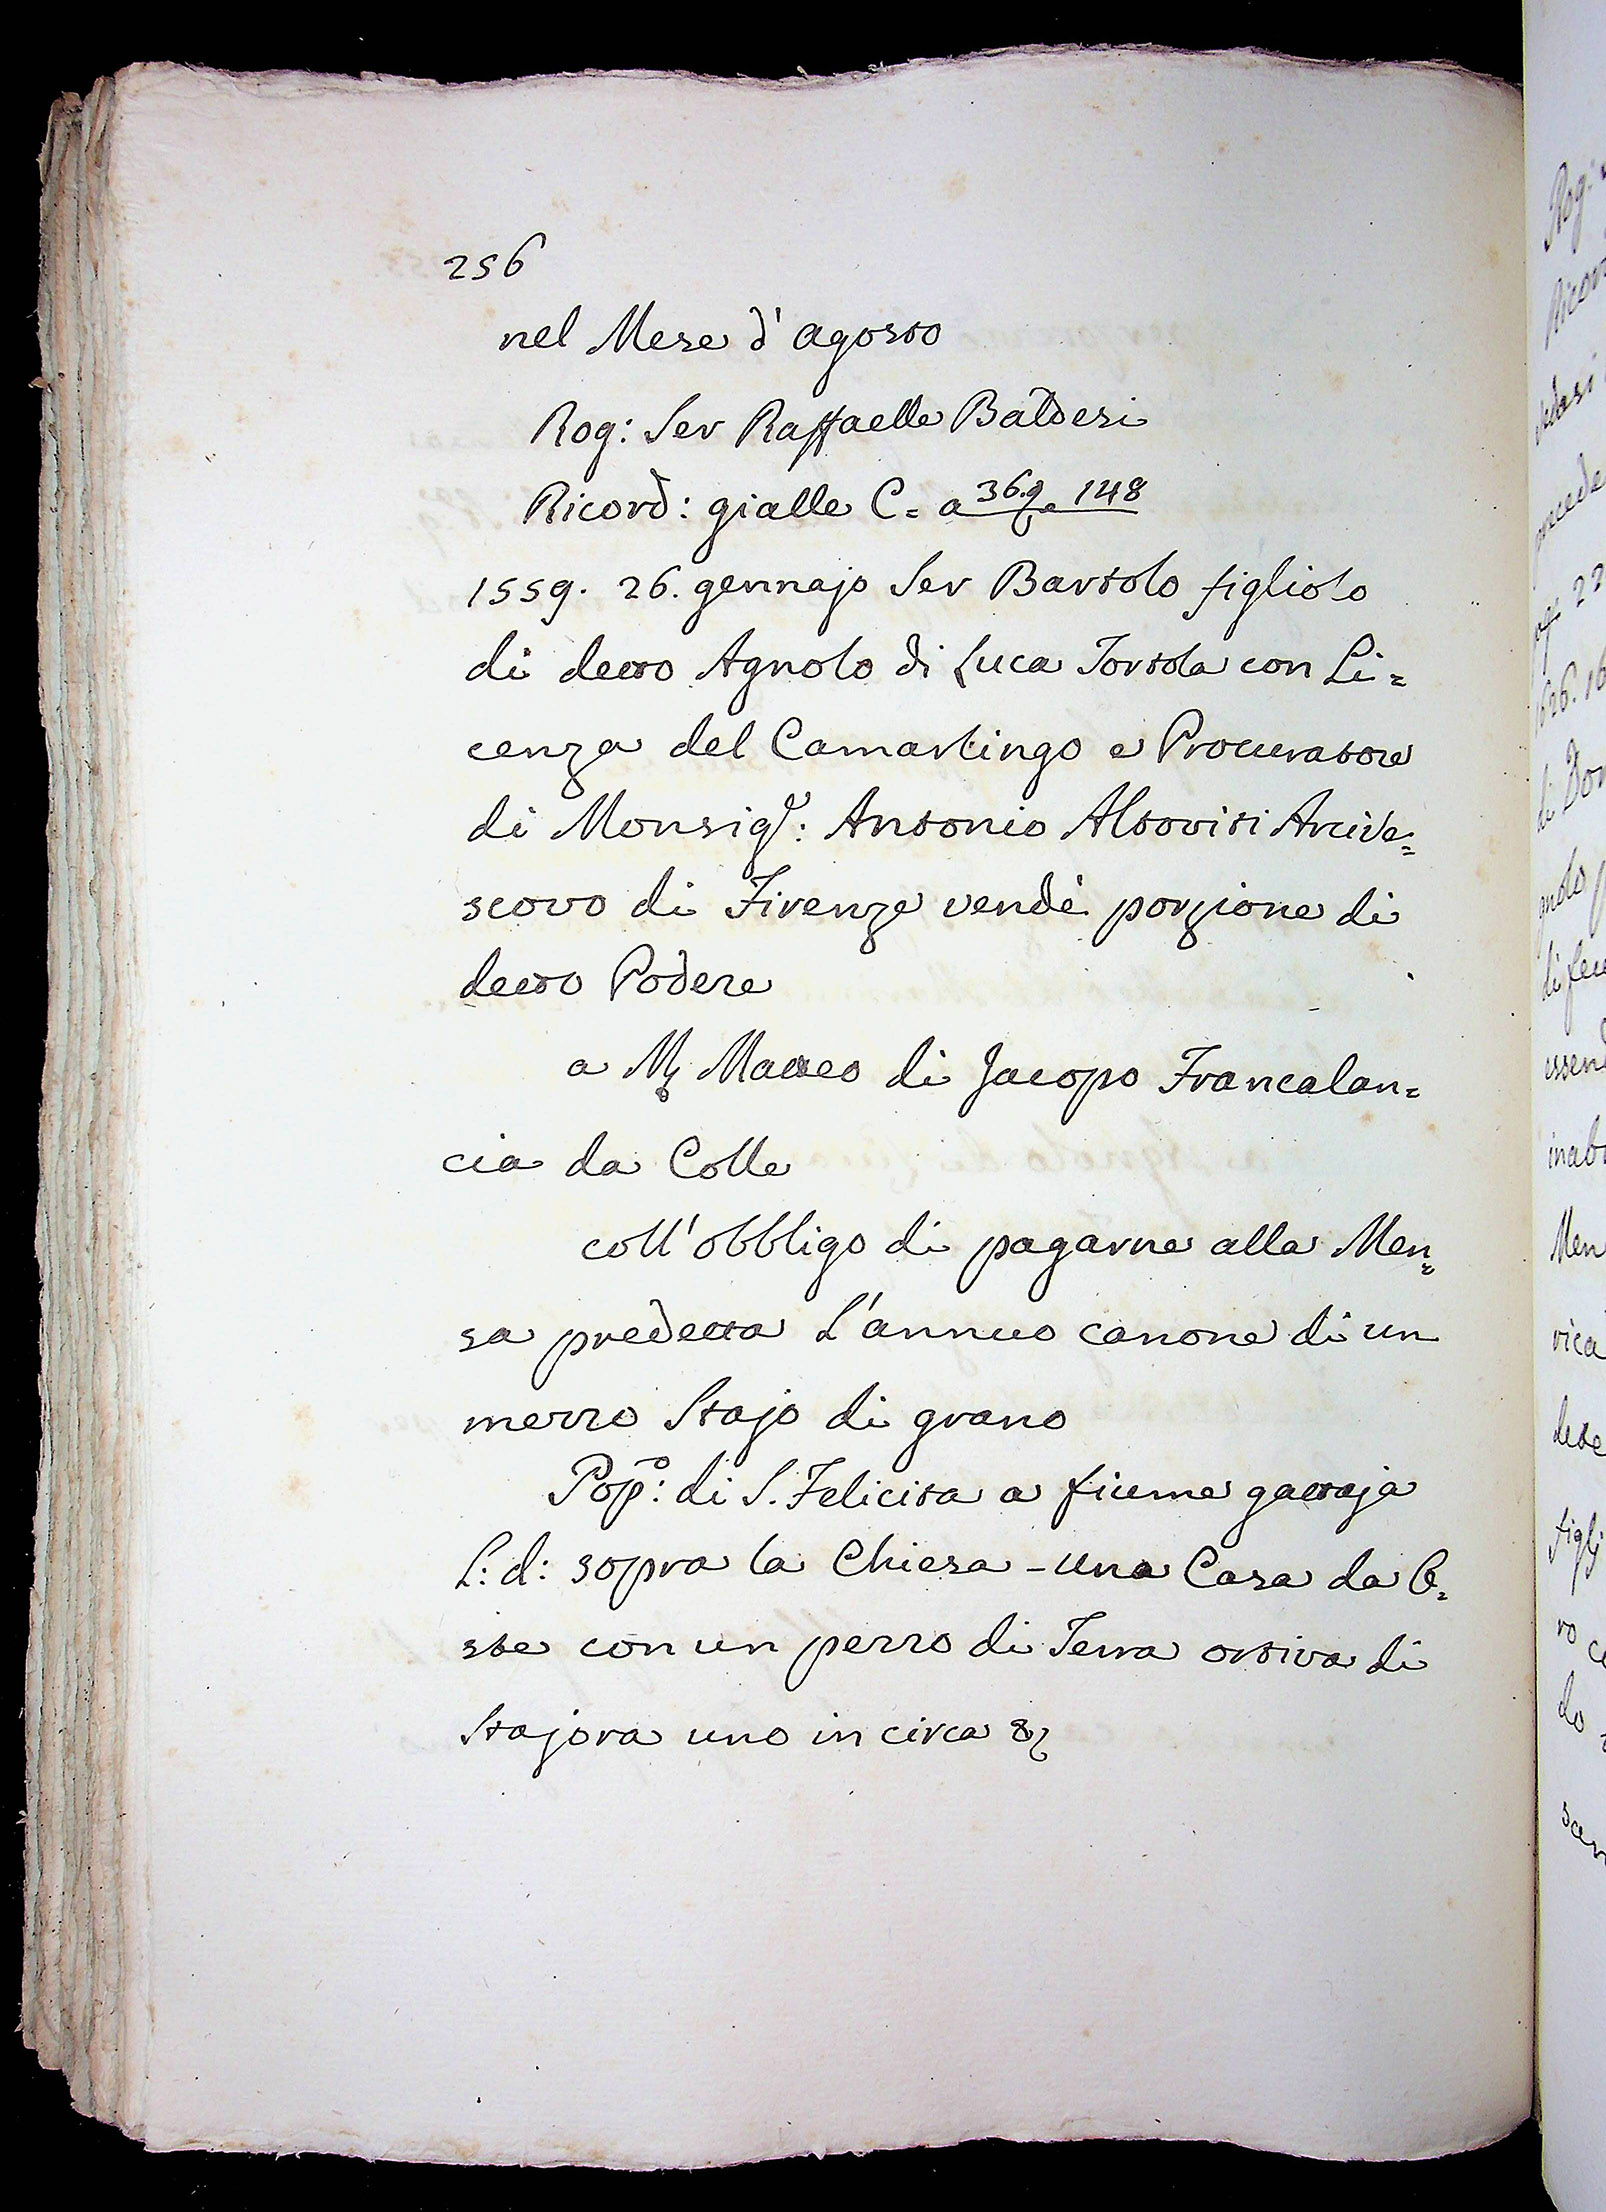 256
nel Mese d'agosto
Rog: Ser Raffaelle Baldesi
Ricord: gialle C= a 36.9. 148
1559. 26. gennajo Ser Bartolo figliolo
di detto Agnolo di Luca Tortola con Li=
cenza del Camarlingo e Procuratore
di Monsigr: Antonio Altoviti Arcive=
scovo di Firenze vendè porzione di
detto Podere
a Mr Matteo di Jacopo Francalan=
cia da Colle
coll'obbligo di pagarne alla Men=
sa predetta L'annuo canone di un
mezzo Stajo di grano
Popo: di S. Felicita a fiume gattaja
L: d: sopra la Chiesa - una Casa da O=
ste con un pezzo di Terra ortiva di
Stajora uno in circa &